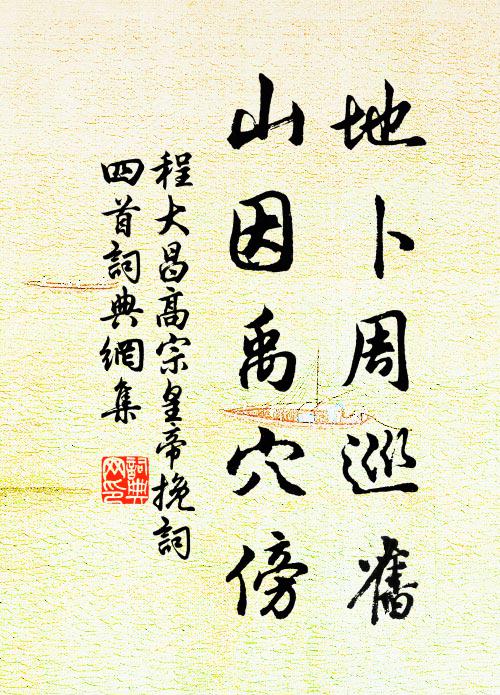 地卜周巡舊
山因禹穴傍
程大昌高宗皇帝挽詞
四首詞典網集
詞典网印